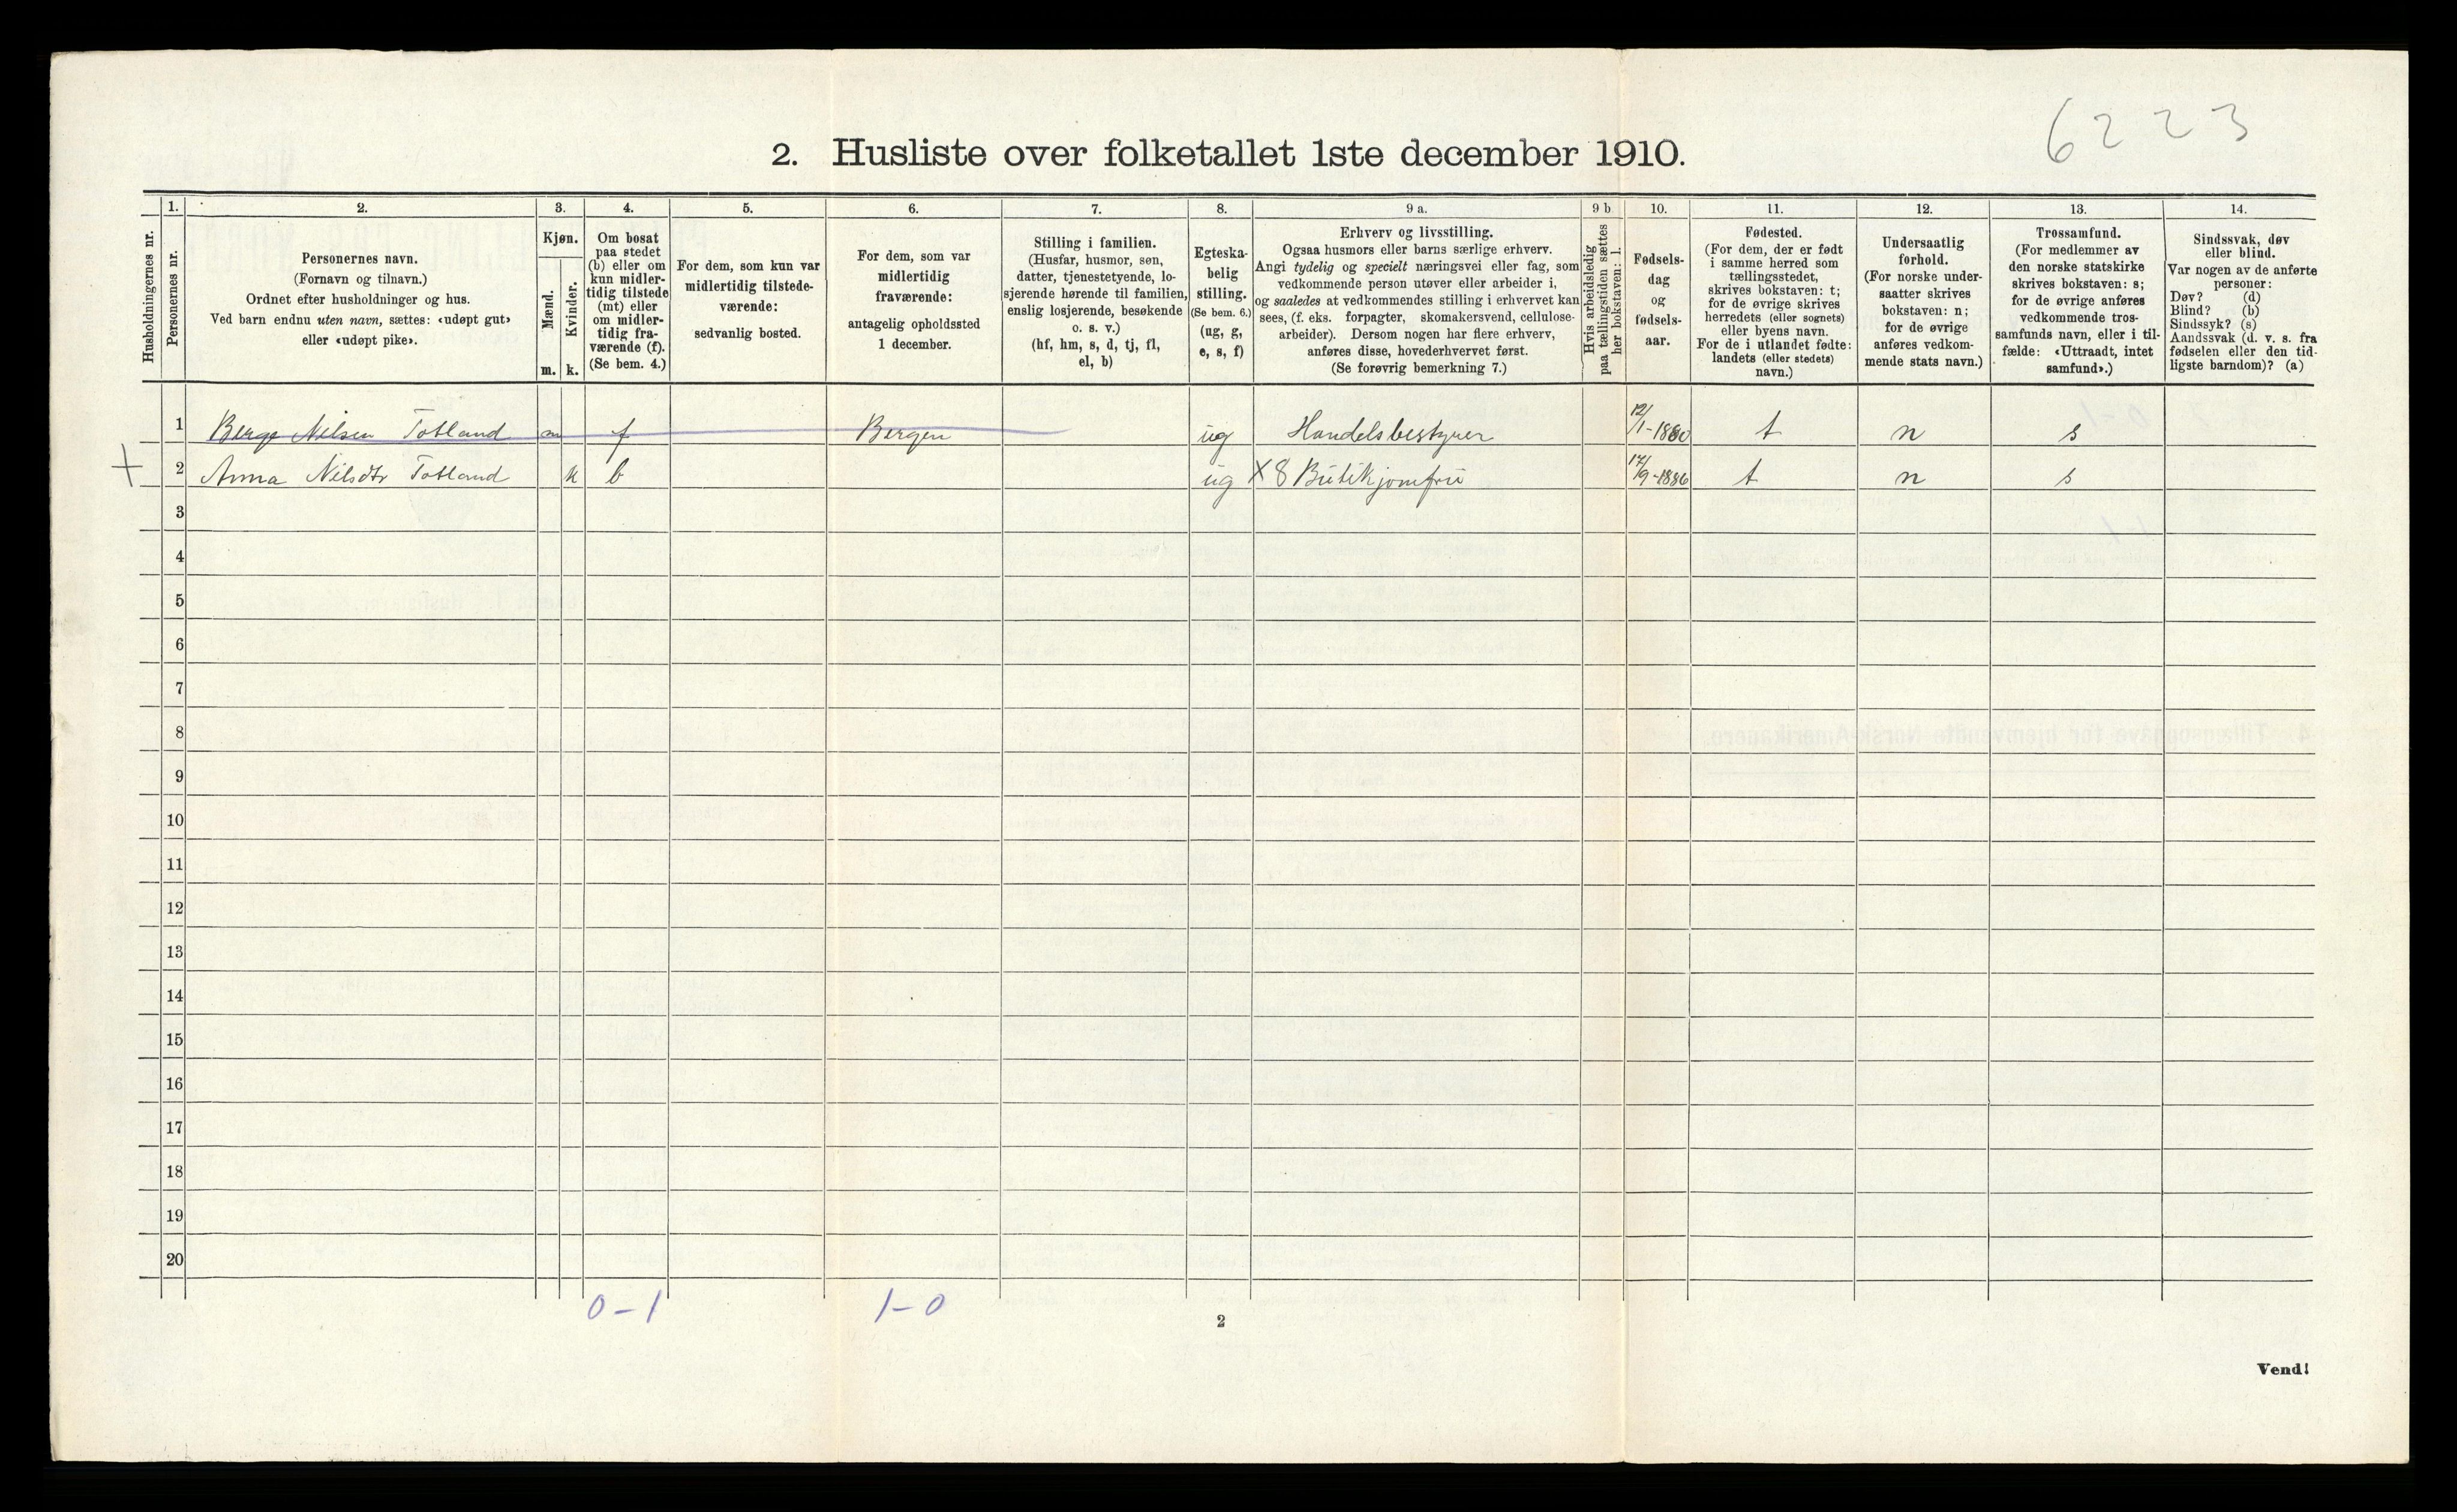 6223
2. Husliste over folketallet 1ste december 1910.
Husholdningernes nr.
1.
Personernes nr.
2.
Personernes navn.
(Fornavn og tilnavn.)
Ordnet efter husholdninger og hus.
Ved barn endnu uten navn, sættes: «udøpt gut»
eller «udøpt pike».
3.
Kjøn.
Mænd.
Kvinder.
m. k.
4.
Om bosat
paa stedet
(b) eller om
kun midler-
tidig tilstede
(mt) eller
om midler-
tidig fra-
værende (f).
(Se bem. 4.)
5.
For dem, som kun var
midlertidig tilstede-
værende:
sedvanlig bosted.
6.
For dem, som var
midlertidig
fraværende:
antagelig opholdssted
1 december.
7.
Stilling i familien.
(Husfar, husmor, søn,
datter, tjenestetyende, lo-
sjerende hørende til familien,
enslig losjerende, besøkende
o. s. v.)
(hf, hm, s, d, tj, fl,
el, b)
8.
Egteska-
belig
stilling.
(Se bem. 6.)
(ug, g,
e, s, f)
9 a.
Erhverv og livsstilling.
Ogsaa husmors eller barns særlige erhverv.
Angi tydelig og specielt næringsvei eller fag, som
vedkommende person utøver eller arbeider i,
og saaledes at vedkommendes stilling i erhvervet kan
sees, (f. eks. forpagter, skomakersvend, cellulose-
arbeider). Dersom nogen har flere erhverv,
anføres disse, hovederhvervet først.
(Se forøvrig bemerkning 7.)
9 b
Hvis arbeidsledig
paa tællingstiden sættes
her bokstaven: l.
10.
Fødsels-
dag
og
fødsels-
aar.
11.
Fødested.
(For dem, der er født
i samme herred som
tællingsstedet,
skrives bokstaven: t;
for de øvrige skrives
herredets (eller sognets)
eller byens navn.
For de i utlandet fødte:
landets (eller stedets)
navn.)
12.
Undersaatlig
forhold.
(For norske under-
saatter skrives
bokstaven: n;
for de øvrige
anføres vedkom-
mende stats navn.)
13.
Trossamfund.
(For medlemmer av
den norske statskirke
skrives bokstaven: s;
for de øvrige anføres
vedkommende tros-
samfunds navn, eller i til-
fælde: «Uttraadt, intet
samfund».)
14.
Sindssvak, døv
eller blind.
Var nogen av de anførte
personer:
Døv? (d)
Blind? (b)
Sindssyk? (s)
Aandssvak (d. v. s. fra
fødselen eller den tid-
ligste barndom)? (a)
1 Berge Nilsen Totland m f Bergen ug Handelsbestyrer 12/1-1880 t n s
+ 2 Anna Nilsdtr Totland k b ug X 8 Butikjomfru 17/9-1886 t n s
3
4
5
6
7
8
9
10
11
12
13
14
15
16
17
18
19
20
0-1 1-0
2
Vend!